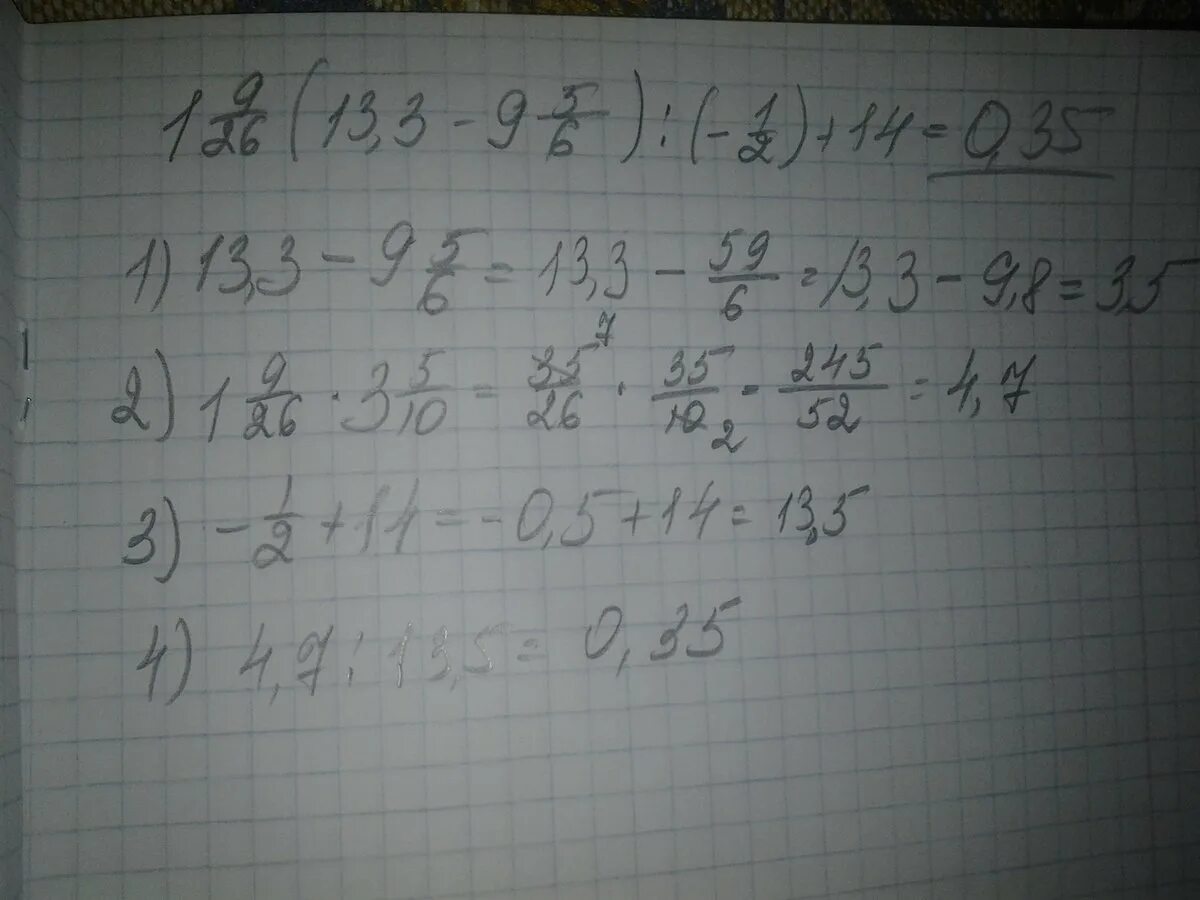 1 9/26 (13,3 - 9 5/6) : (-1/2) + 14 = 0,35
1) 13,3 - 9 5/6 = 13,3 - 59/6 = 13,3 - 9,8 = 3,5
2) 1 9/26 · 3 5/10 = 35/26 · 35/10 = 245/52 = 4,7
7
2
3) -1/2 + 14 = -0,5 + 14 = 13,5
4) 4,7 : 13,5 = 0,35